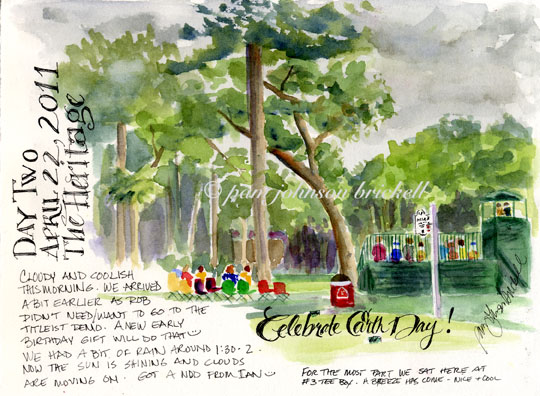 DAY TWO
APRIL 22, 2011
The Heritage
© pam johnson brickell
CLOUDY AND COOLISH
THIS MORNING. WE ARRIVED
A BIT EARLIER AS ROB
DIDN'T NEED/WANT TO GO TO THE
TITLEIST DEMO. A NEW EARLY
BIRTHDAY GIFT WILL DO THAT
WE HAD A BIT OF RAIN AROUND 1:30-2.
NOW THE SUN IS SHINING AND CLOUDS
ARE MOVING ON. GOT A NOD FROM IAN
Celebrate Earth Day!
FOR THE MOST PART WE SAT HERE AT
#3 TEE BOX. A BREEZE HAS COME - NICE + COOL